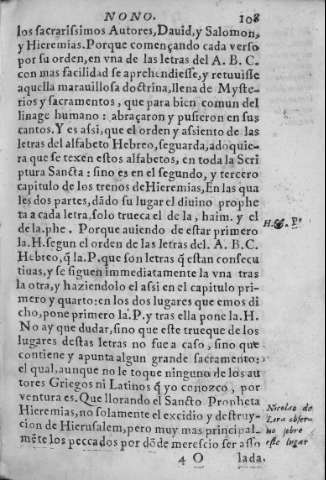 NONO.
108
los sacrarissimos Autores, Dauid, y Salomon,
y Hieremias. Porque començando cada verso
por su orden, en vna de las letras del A. B. C.
con mas facilidad se aprehendiesse, y retuuisse
aquella marauillosa doctrina, llena de Myste-
rios y sacramentos, que para bien comun del
linage humano: abraçaron y pusieron en sus
cantos. Y es assi, que el orden y assiento de las
letras del alfabeto Hebreo, se guarda, adoquie-
ra que se texen estos alfabetos, en toda la Scri
ptura Sancta: sino es en el segundo, y tercero
capitulo de los trenos de Hieremias, En las qua
les dos partes, dādo su lugar el diuino prophe
ta a cada letra, solo trueca el de la, haim. y el
de la. phe. Porque auiendo de estar primero
la. H. segun el orden de las letras del. A. B. C.
Hebreo, q̄ la. P. que son letras q̄ estan consecu
tiuas, y se siguen immediatamente la vna tras
la otra, y haziendolo el assi en el capitulo pri-
mero y quarto: en los dos lugares que emos di
cho, pone primero la. P. y tras ella pone la. H.
No ay que dudar, sino que este trueque de los
lugares destas letras no fue a caso, sino que
contiene y apunta algun grande sacramento:
el qual, aunque no le toque ninguno de los au
tores Griegos ni Latinos q̄ yo conozco, por
ventura es. Que llorando el Sancto Propheta
Hieremias, no solamente el excidio y destruy-
cion de Hierusalem, pero muy mas principal-
mēte los peccados por dōde merescio ser asso
4 O
lada.
H. P.
Nicolao de
Lira obseru
no sobre
este lugar